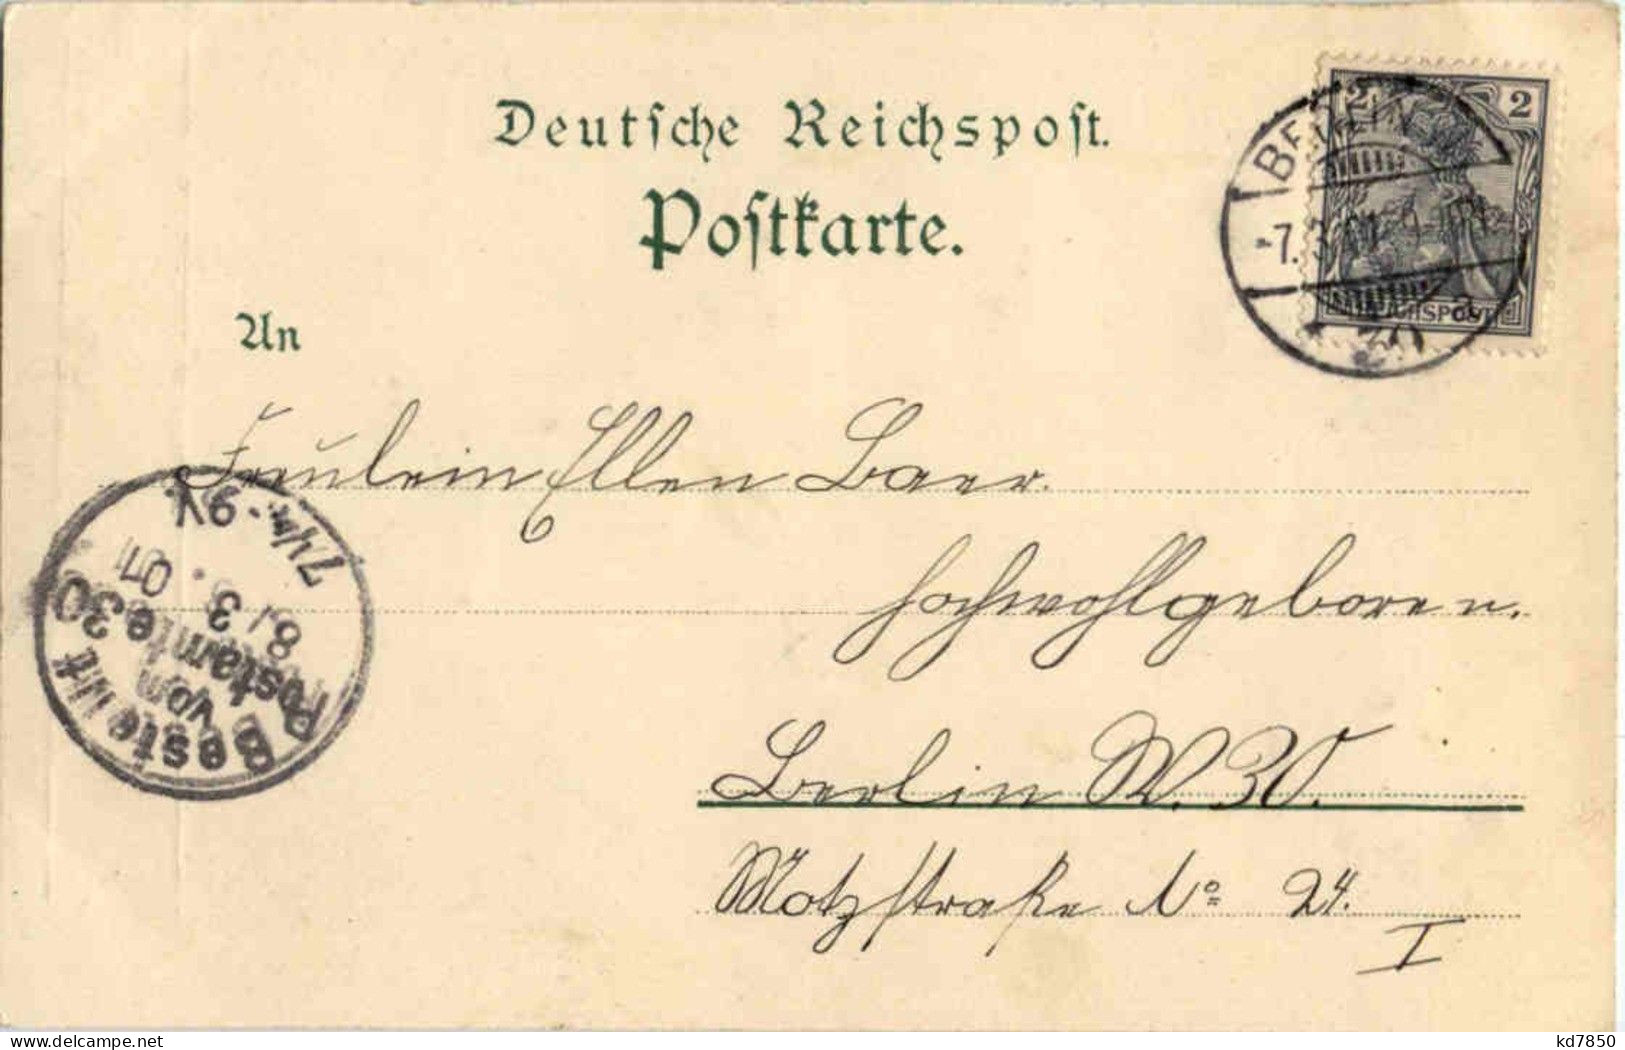 Deutsche Reichspost.
Postkarte.
An
Fräulein Ellen Baer.
Hochwohlgeboren.
Berlin W. 30.
Motzstraße No 24.
I
2 2
REICHSPOST
BERLIN
-7.3.01
a
Bestellt
vom
Postamte 30
8/ 3. 01
7 1/4 - 9 V.
kd7850